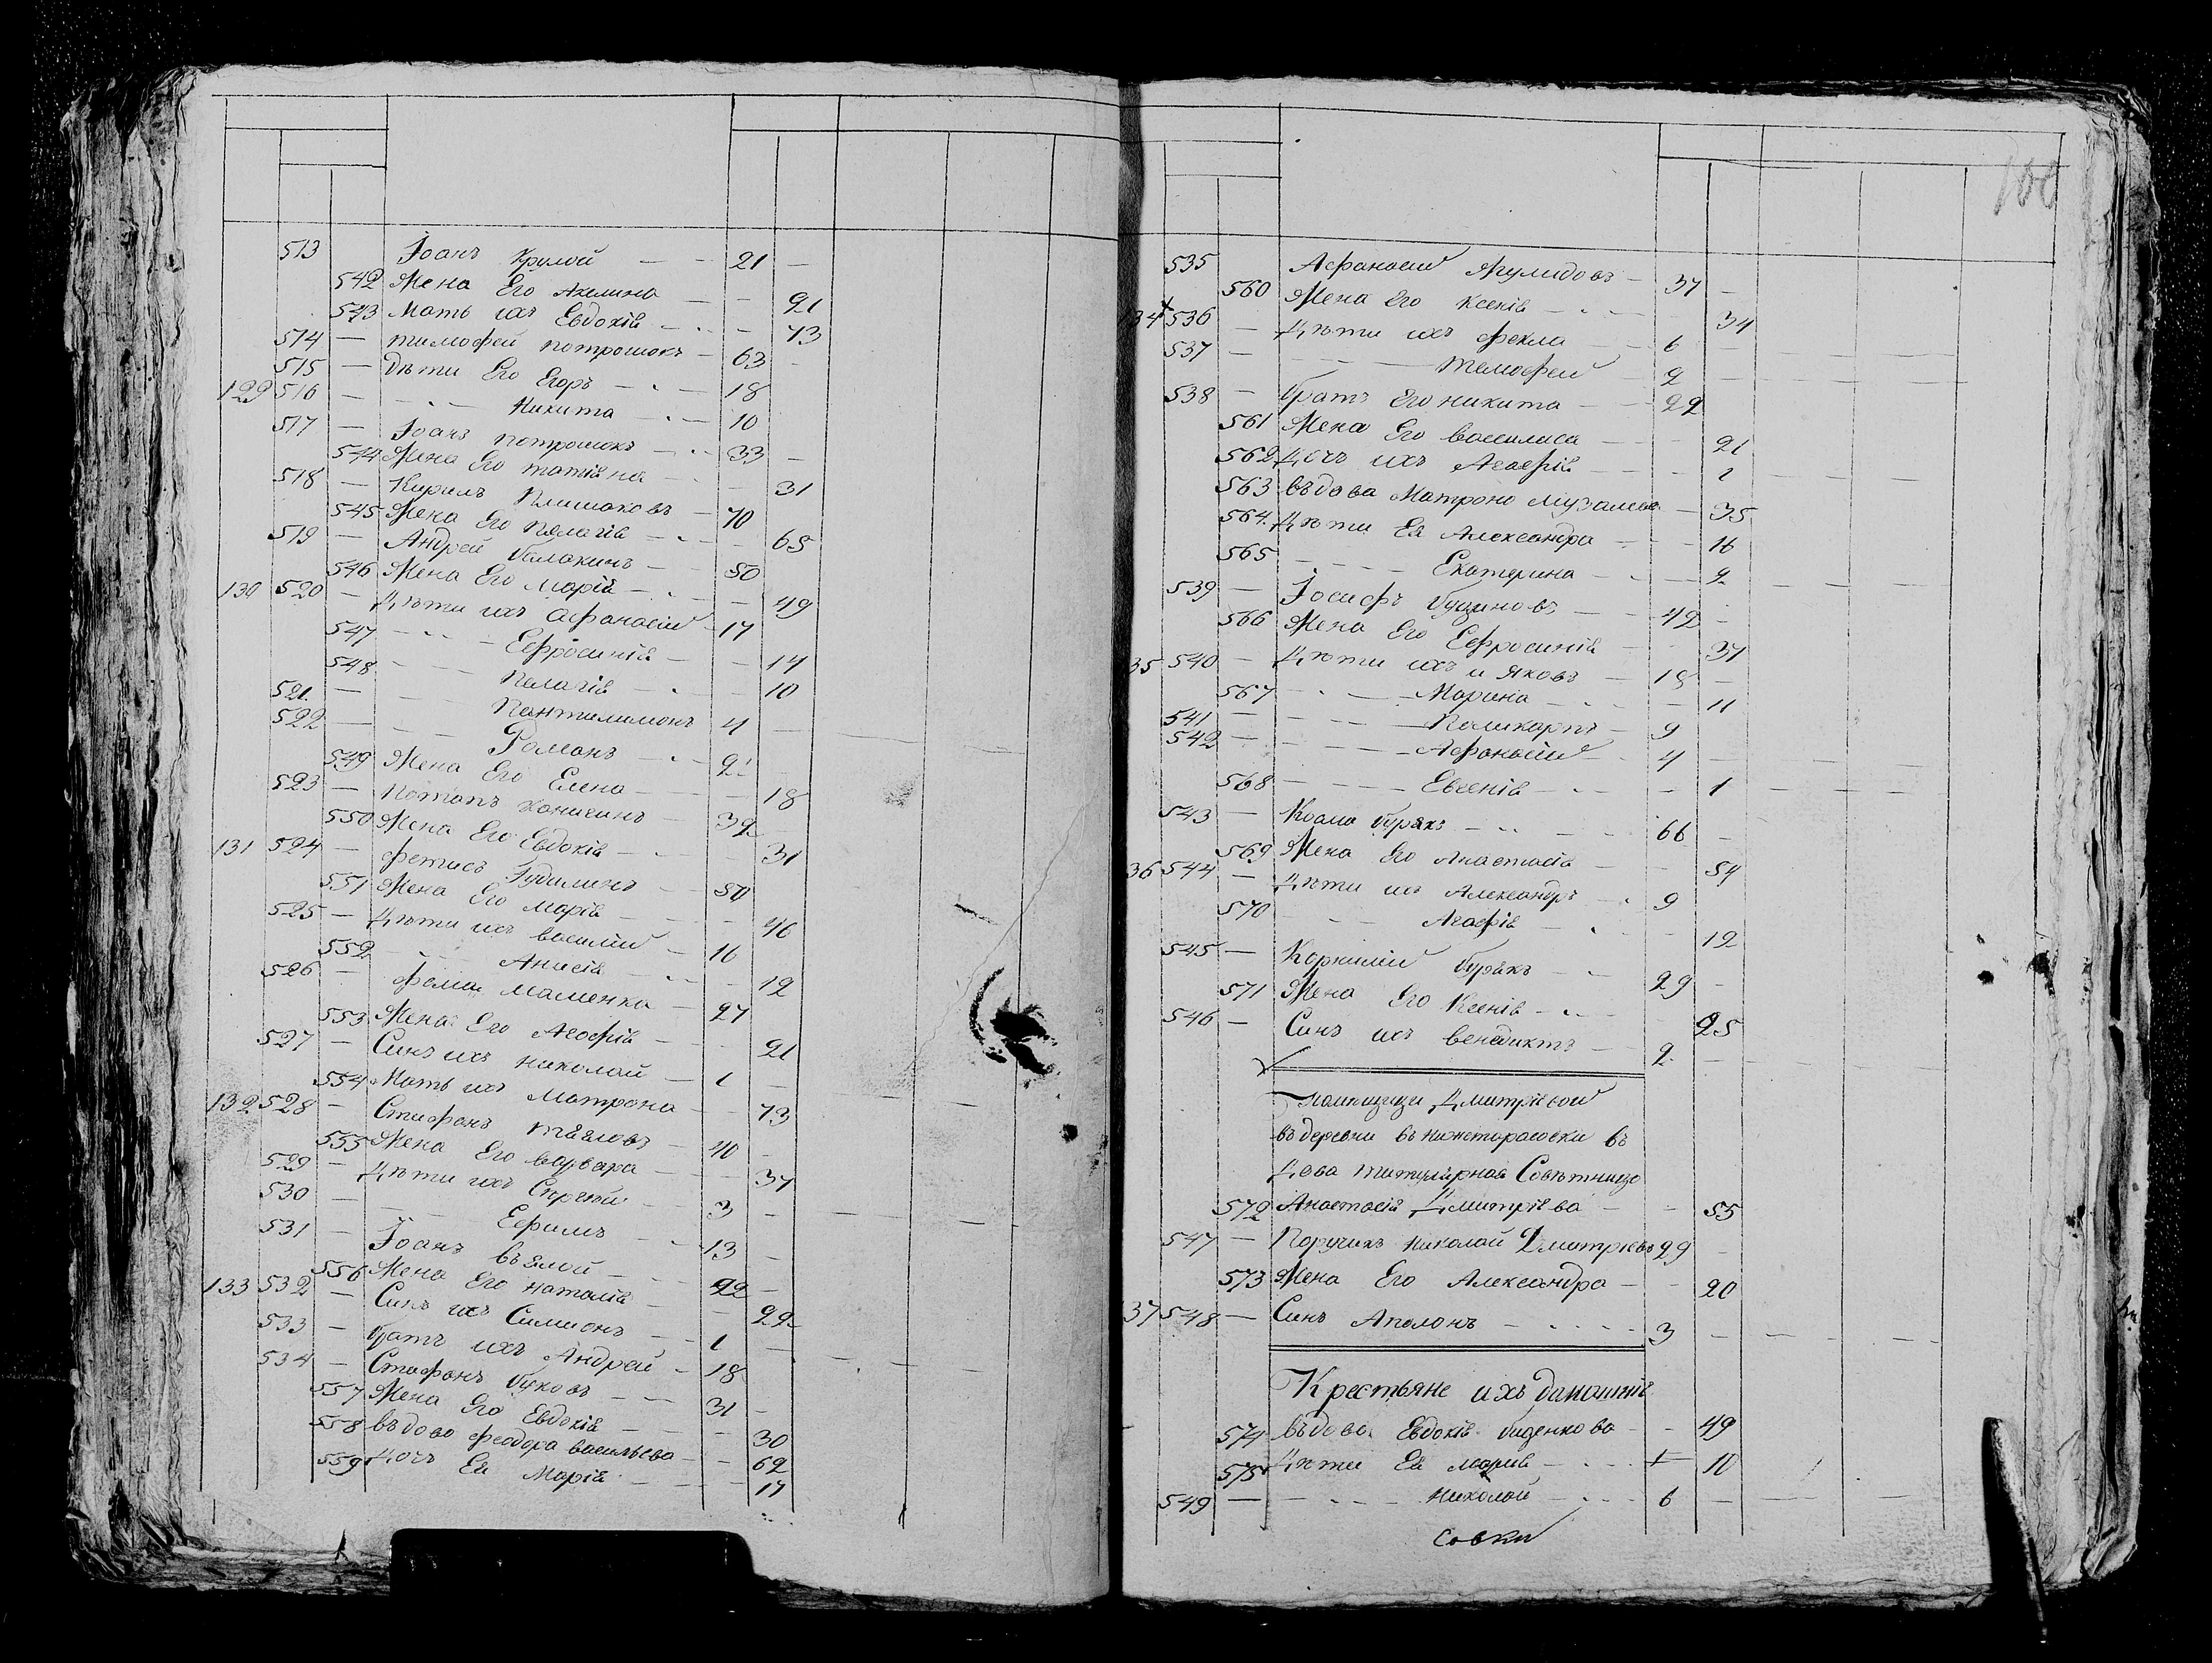 513 Іоанъ Кулой — — 21 —
542 Жена Его Акелина — — 21
543 Мать ихъ Евдокія — . — — 73
514 — тимофей потрошокъ — 63 —
515 — дѣти Его Егоръ — . — 18
129 516 — — . — Никита — . — 10
517 — Іоанъ потрошокъ — . — 33 —
544 Жена Его татіяна — — 31
518 — Кирилъ Плишаковъ — 70
545 Жена Его Пелагія — . — — 65
519 — Андрей балакинъ — — 50
546 Жена Его Марія — . — — 49
130 520 — Дѣти ихъ Афанасій — 17
547 — . . — Ефросинія — — 14
548 — — Пелагія — . — 10
521 — — Пантилимонъ 4 —
522 — — — Романъ — . — 21 —
549 Жена Его Елена — — — 18
523 — Потапъ Ханисинъ — 32
550 Жена Его Евдокія — . — — 31
131 524 — фетисъ Гудилинъ — 50
551 Жена Его Марія — — — 46
525 — Дѣти ихъ василій — 16
552 — . . — Анисія — . . — — 12
526 — фома маменка — 27
553 Жена Его Агафія — — — 21
527 — Синъ ихъ николай — 1 —
554 Мать ихъ Матрона — — 73
132 528 — Стефанъ тяяловъ — 40 —
555 Жена Его варвара — — — 37
529 — Дѣти ихъ Сергѣй — — 3 —
530 — — — Ефимъ — . — 13 —
531 — Іоанъ вѣялой — — 22 —
556 Жена Его наталія — — — 22
133 532 — Синъ ихъ Симионъ — — 1 —
533 — братъ ихъ Андрей — 18
534 — Стефанъ буковъ — — 31 —
557 Жена Его Евдокія — — — 30
558 въдова феодора васильева — — 62
559 дочъ Ея Марія — — — 17
100
535 Афанасій — 37 —
560 Жена Его Ксенія — . — — 34
34 536 — Дѣти ихъ фекла — 6 —
537 — — — — тимофей — 2 —
538 — братъ Его никита — — 22
561 Жена Его василиса — — 21
562 Дочъ ихъ Агафія — — — 1
563 въдова Матрона — 35
564 Дѣти Ея Александра — — 16
565 — . — — Екатерина — . — 2
539 — Іосифъ буциновъ — — 42 —
566 Жена Его Ефросинія — — 37
35 540 — Дѣти ихъ и Яковъ — 18 —
567 — . — — Марина — . — — 11
541 — — — — Поликарпъ — 9
542 — — — — Афанасій — 4 —
568 — — — Евгенія — . . — — 1
543 — Косма бурякъ — . . — 66 —
569 Жена Его Анастасія — — 54
36 544 — Дѣти ихъ Александръ — . 9
570 — — Агафія — . — 12
545 — Корнилій бурякъ — . . — 29 —
571 Жена Его Ксенія — . . — 25
546 — Синъ ихъ венедиктъ — 2 —
помѣщици Дмитріевой
въ деревни въ
Дова титулярная Совѣтница
572 Анастасія Дмитріева — — 55
547 — Поручикъ николай Дмитріевъ 29 —
573 Жена Его Александра — — 20
37 548 — Синъ Аполонъ — . . . . 3 —
Крестьяне ихъ домашнія
574 въдова Евдокія биденкова — — 49
575 Дѣти Ея марія — . . . — 10
549 — — . — . — николай — . . . 6 —